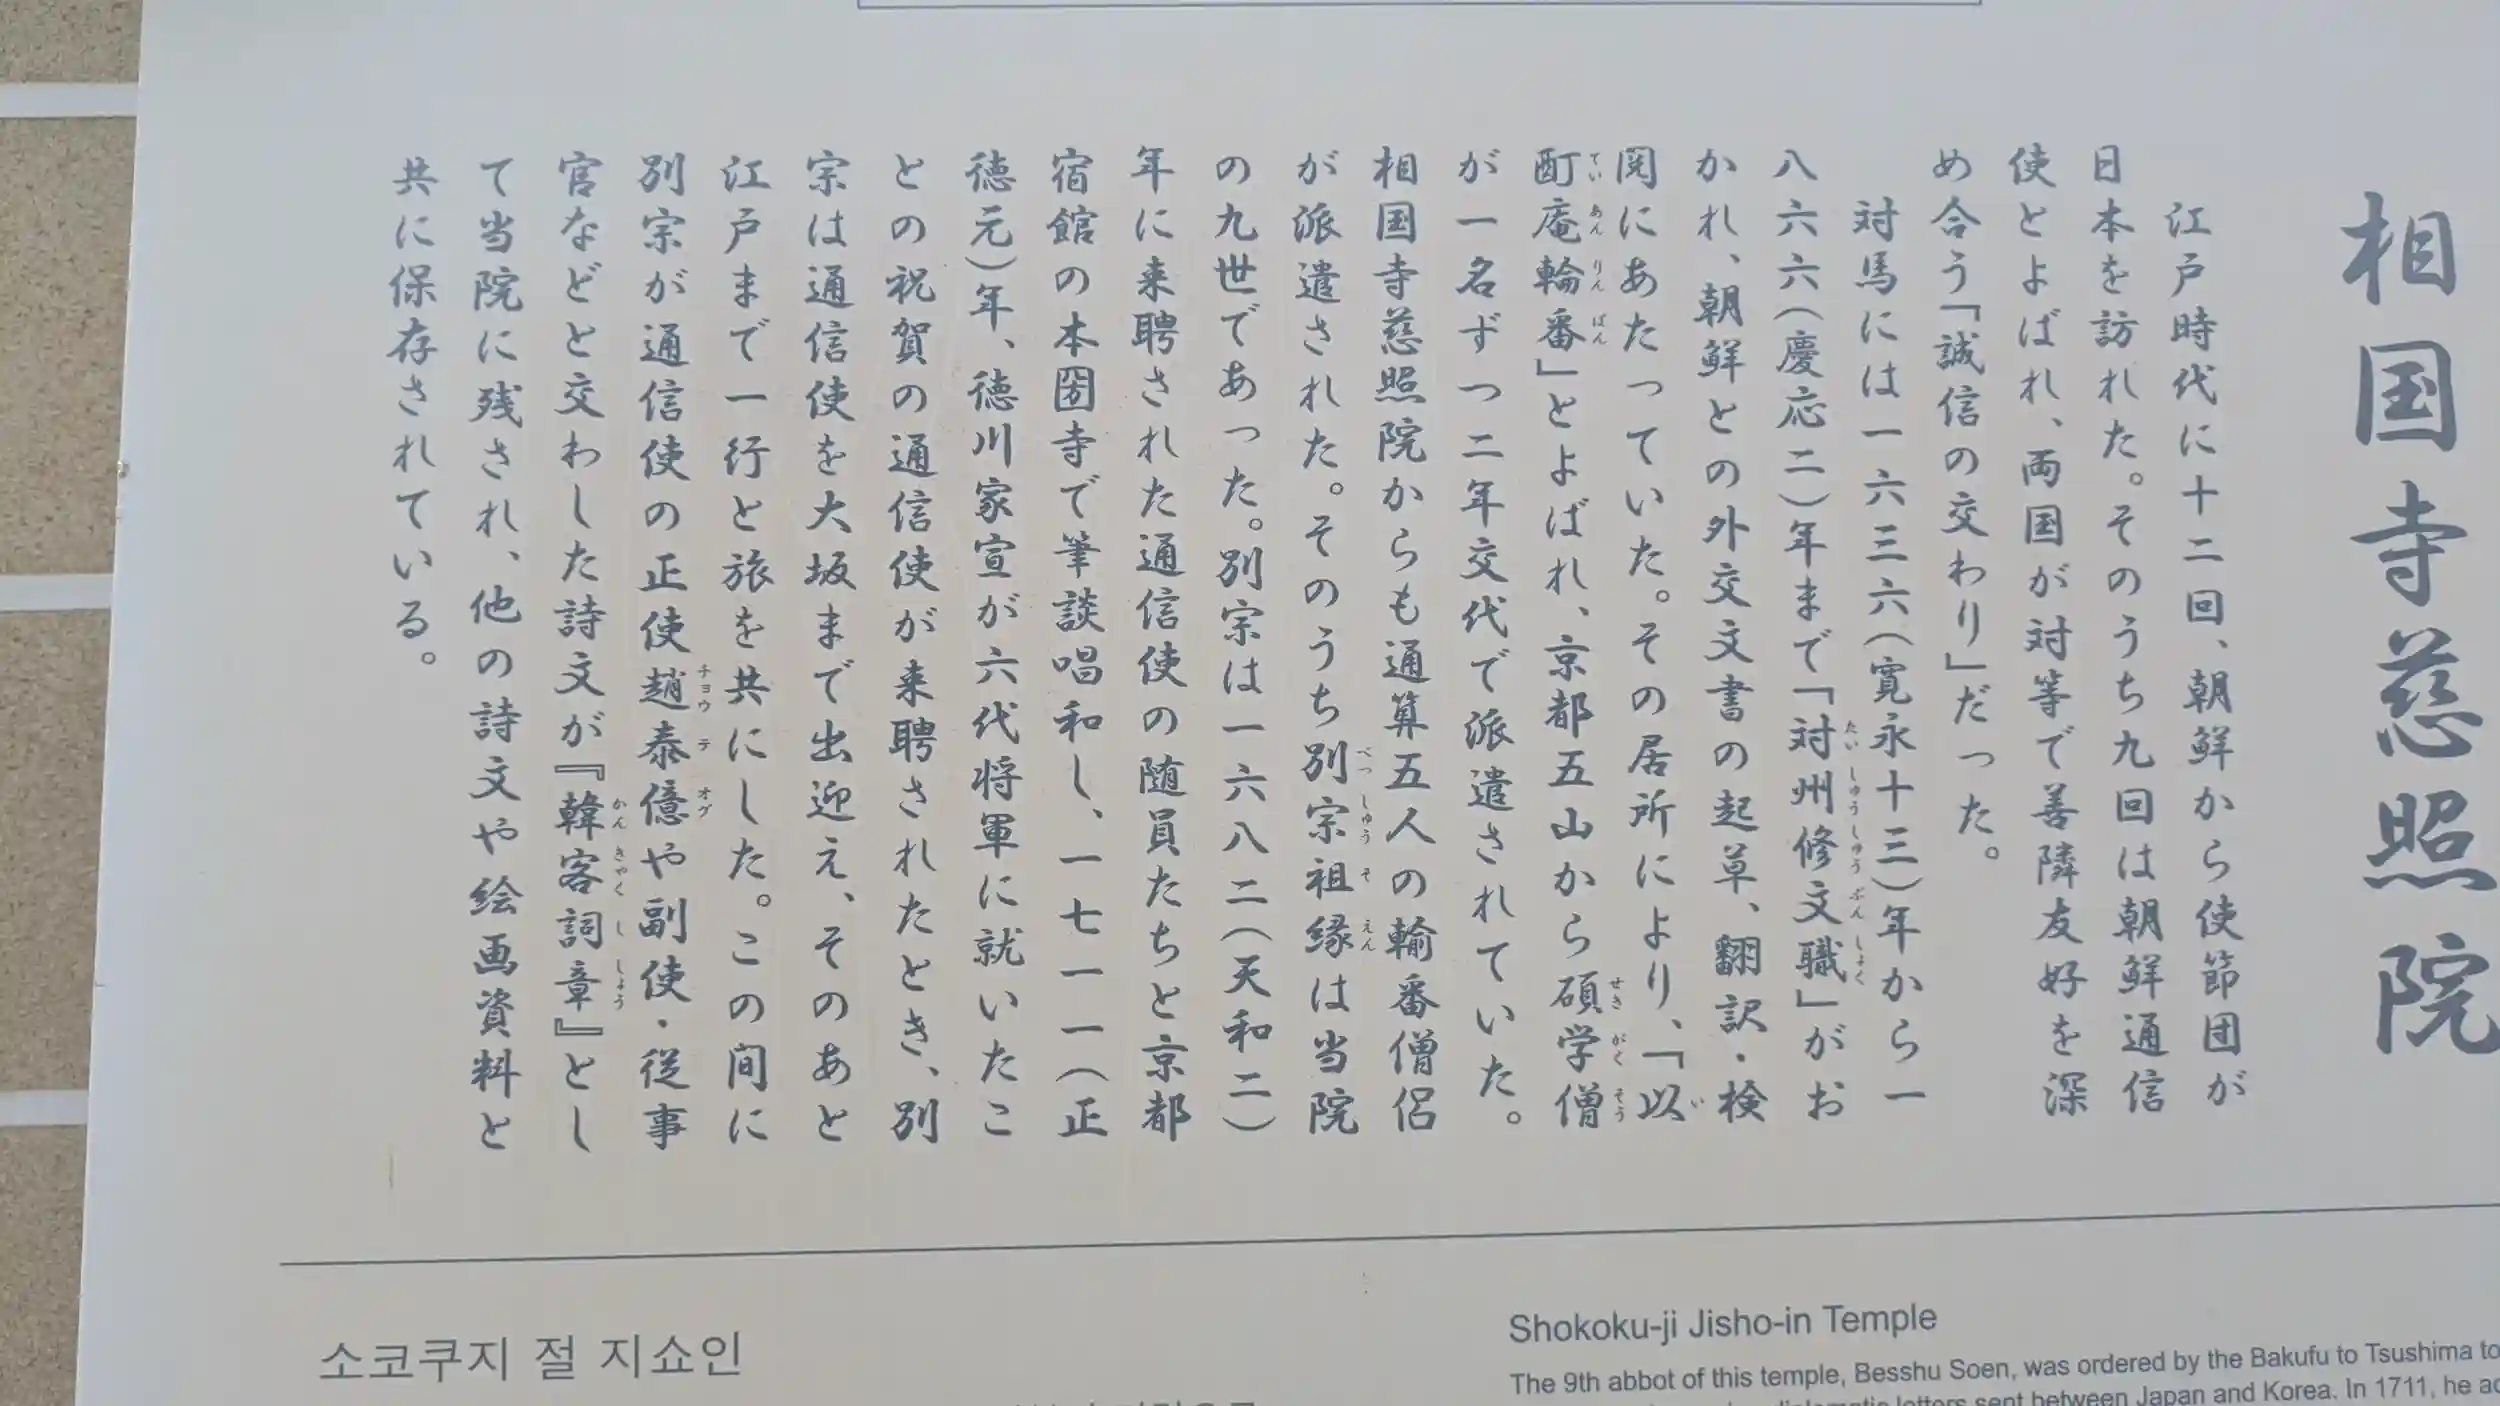 相国寺慈照院
江戸時代に十二回、朝鮮から使節団が
日本を訪れた。そのうち九回は朝鮮通信
使とよばれ、両国が対等で善隣友好を深
め合う「誠信の交わり」だった。
対馬には一六三六（寛永十三）年から一
八六六（慶応二）年まで「対州修文職」がお
かれ、朝鮮との外交文書の起草、翻訳・検
閲にあたっていた。その居所により、「以
酊庵輪番」とよばれ、京都五山から碩学僧
が一名ずつ二年交代で派遣されていた。
相国寺慈照院からも通算五人の輪番僧侶
が派遣された。そのうち別宗祖縁は当院
の九世であった。別宗は一六八二（天和二）
年に来聘された通信使の随員たちと京都
宿館の本圀寺で筆談唱和し、一七一一（正
徳元）年、徳川家宣が六代将軍に就いたこ
との祝賀の通信使が来聘されたとき、別
宗は通信使を大坂まで出迎え、そのあと
江戸まで一行と旅を共にした。この間に
別宗が通信使の正使趙泰億や副使・従事
官などと交わした詩文が『韓客詞章』とし
て当院に残され、他の詩文や絵画資料と
共に保存されている。
소코쿠지 절 지쇼인
Shokoku-ji Jisho-in Temple
The 9th abbot of this temple, Besshu Soen, was ordered by the Bakufu to Tsushima to
diplomatic letters sent between Japan and Korea. In 1711, he